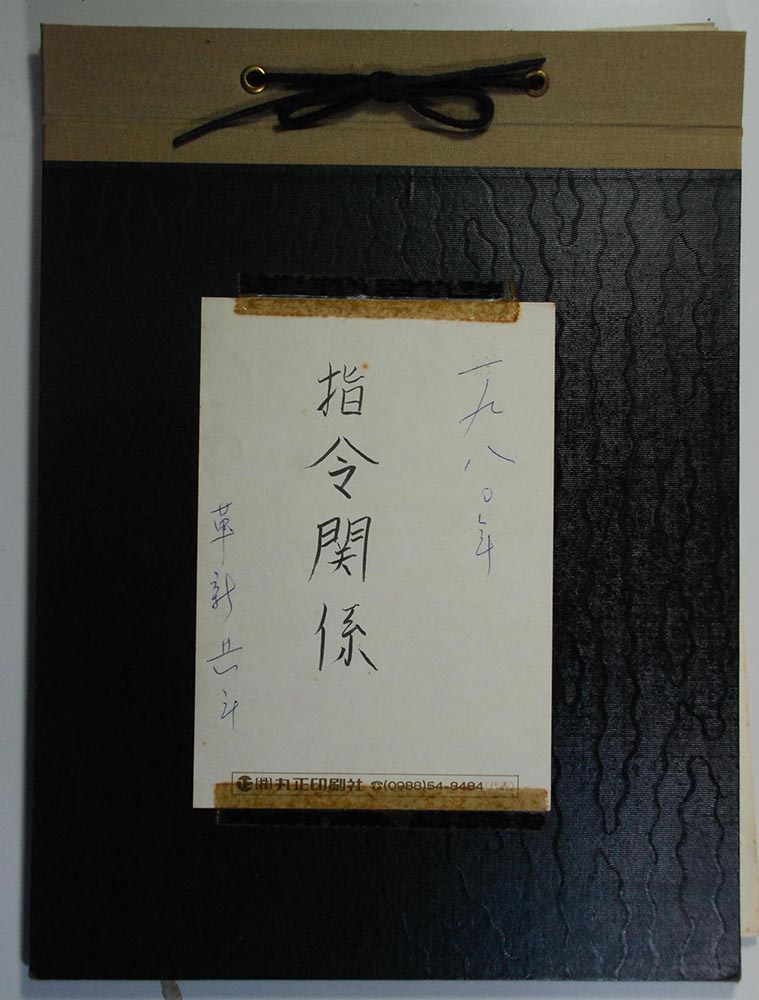 一九八〇年
指令関係
革新共斗
㈱丸正印刷社 ☎(0988)54-8484(代表)